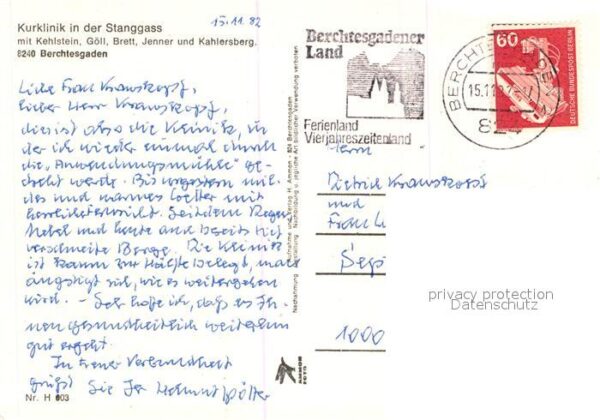 15.11.82
Kurklinik in der Stanggass
mit Kehlstein, Göll, Brett, Jenner und Kahlersberg.
8240 Berchtesgaden
Liebe Frau Krauskopf,
lieber Herr Krauskopf,
dies ist also die Klinik, in
der ich wieder einmal durch
die „Anwendungsmühle" ge-
dreht werde. Bis vorgestern mil-
des und warmes Wetter mit
herrlichster Sicht. Seitdem Regen
Nebel und heute auch bereits tief
verschneite Berge. Die Klinik
ist kaum zur Hälfte belegt, man
ängstigt sich, wie es weitergehen
wird. – Sehr hoffe ich, daß es Ih-
nen gesundheitlich weiterhin
gut ergeht.
In treuer Verbundenheit
grüßt Sie Ihr Helmut
Nr. H 603
Aufnahme und Verlag H. Ammon · 824 Berchtesgaden
Nachahmung, Nachbildung u. jegliche Art bildlicher Verwendung verboten
AMMON
FOTO
Berchtesgadener
Land
Ferienland
Vierjahreszeitenland
BERCHTESGADEN
15.11.82
824
60
DEUTSCHE BUNDESPOST BERLIN
Herrn
Dietrich Krauskopf
und
Frau
1000
privacy protection
Datenschutz